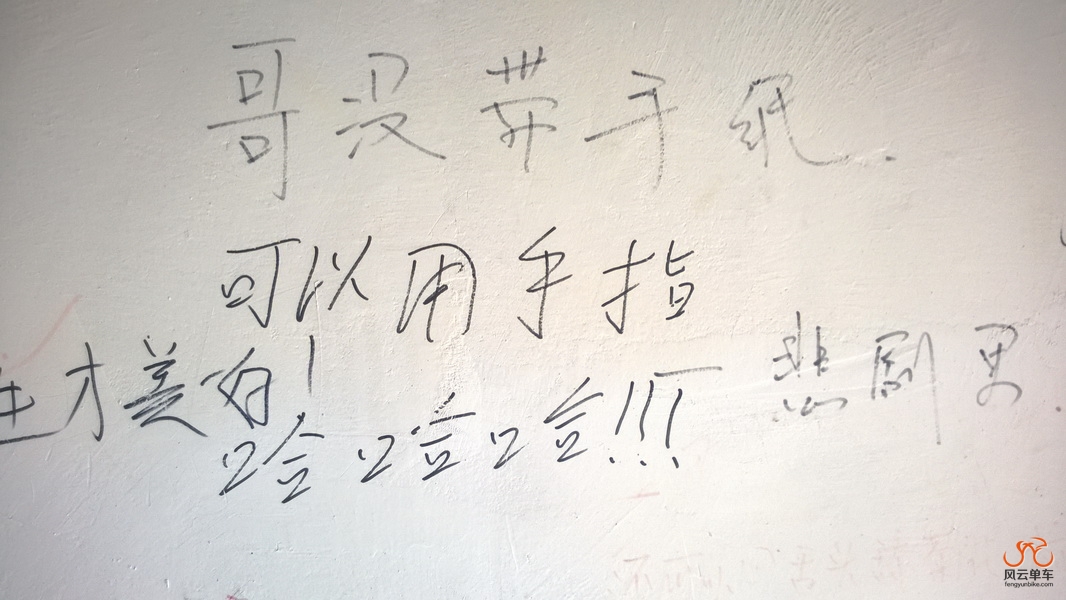 哥没带手纸.
可以用手指
才美好!
哈哈哈!!!
悲剧男
风云单车
fengyunbike.com